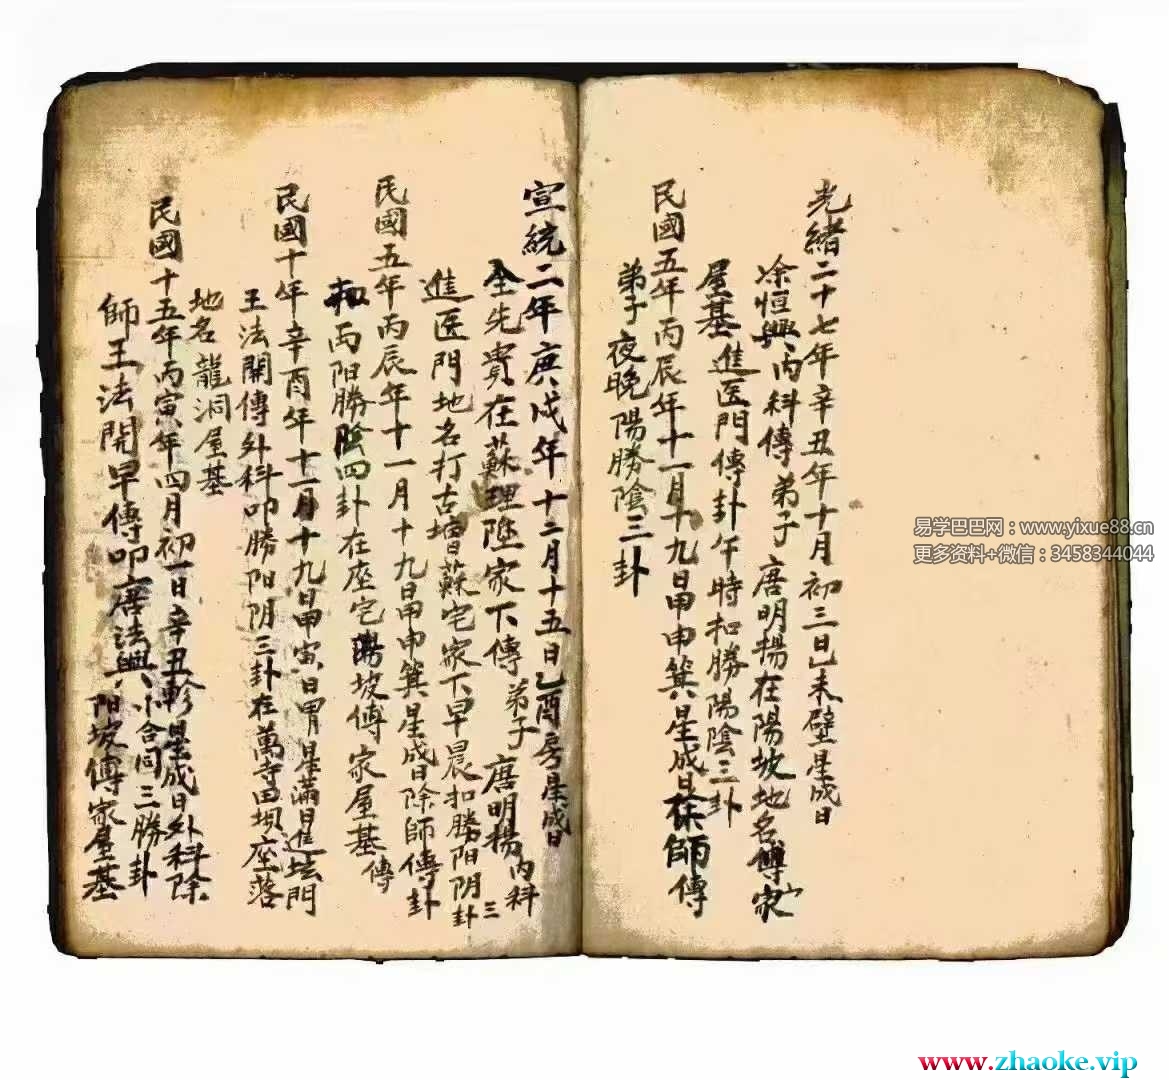 光緒二十七年辛丑年十月初三日乙未壁星成日
涂恒興、內科傳弟子唐明揚在陽坡地名傅家
屋基進医門傳卦午時扣勝陽陰三卦
民國五年丙辰年十一月十九日甲申箕星成日徐師傳
弟子夜晚陽勝陰三卦
宣統二年庚戌年十二月十五日乙酉房星成日
全先貴在蘇理陞家下傳弟子唐明揚內科
進医門地名打古壋蘇宅家下早晨扣勝阳阴三卦
民國五年丙辰年十一月十九日甲申箕星成日除師傳卦
丙阳勝陰四卦在座宅陽坡傅家屋基傳
民國十年辛酉年十一月十九日甲寅日胃星滿日進坛門
王法開傳外科叩勝阳阴三卦在萬寺田坝座落
地名龍洞屋基
民國十五年丙寅年四月初一日辛丑軫星成日外科除
師王法開早傳叩唐法興、小合同三勝卦
阳坡傅家屋基
易学巴巴网：www.yixue88.cn
更多资料+微信：3458344044
www.zhaoke.vip